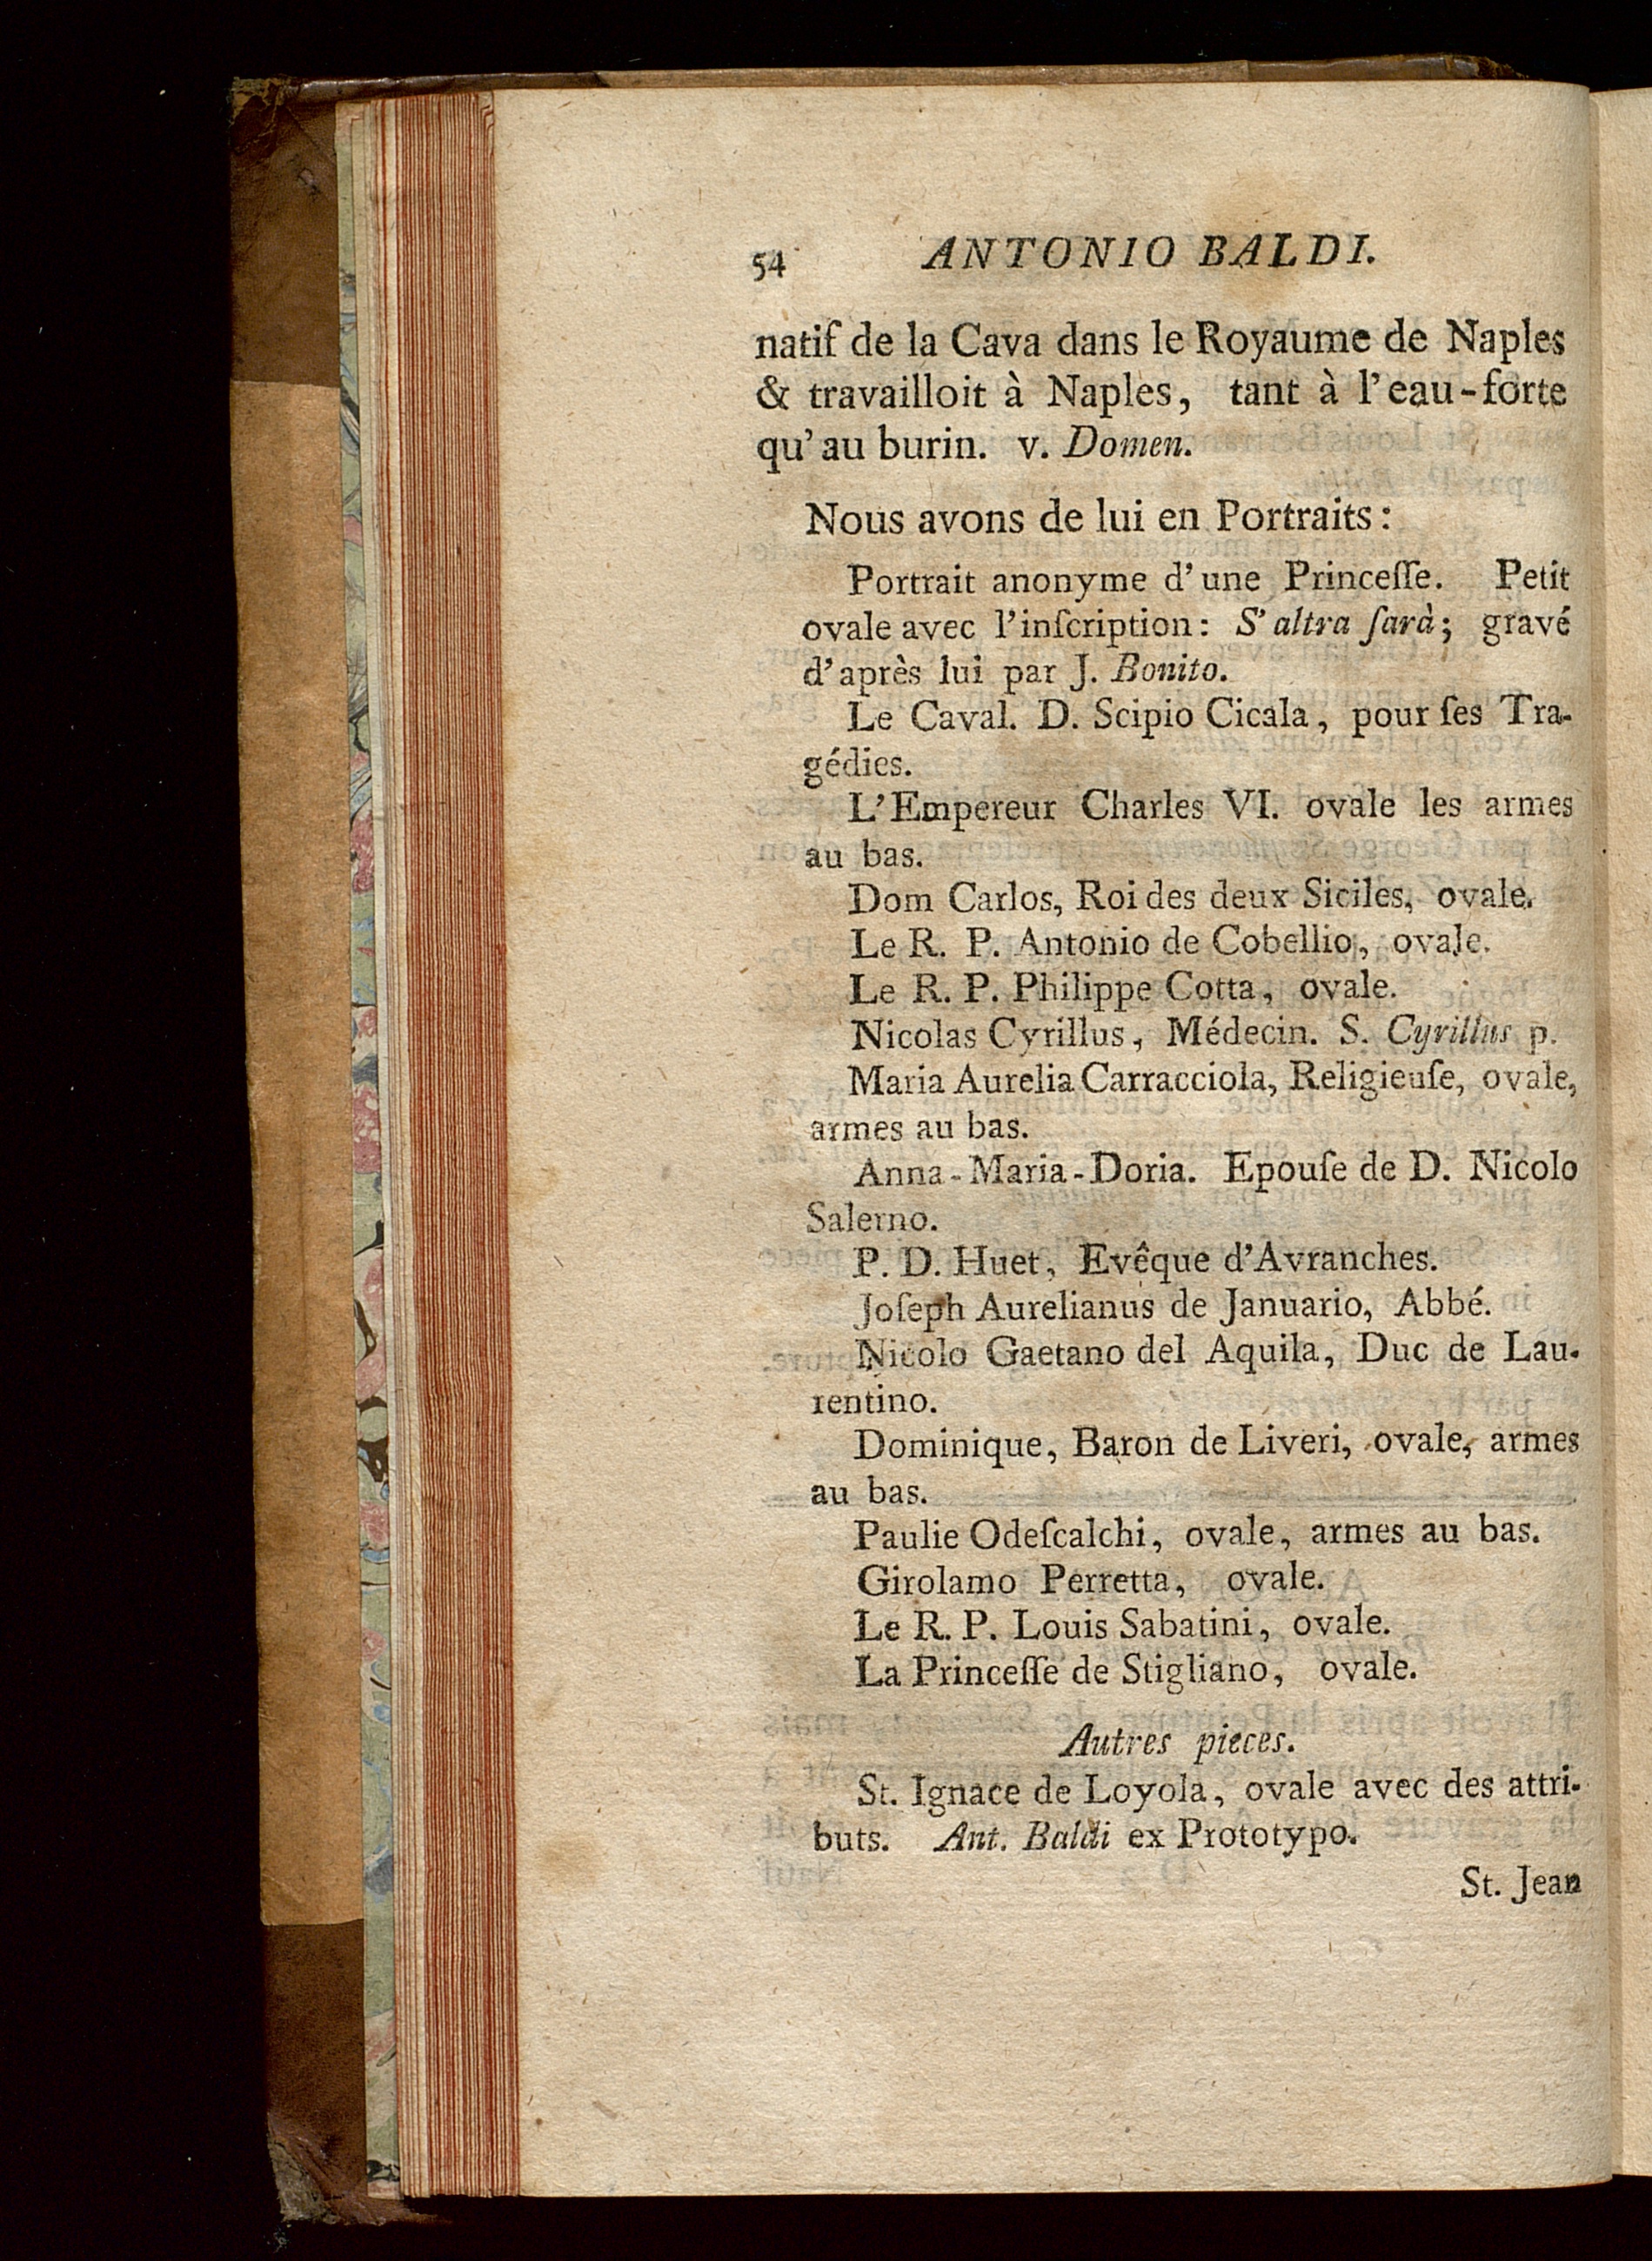 54 ANTONIO BALDI.
natif de la Cava dans le Royaume de Naples
& travailloit à Naples, tant à l'eau-forte
qu'au burin. v. Domen.
Nous avons de lui en Portraits:
Portrait anonyme d'une Princeſſe. Petit
ovale avec l'inſcription: S'altra ſarà; gravé
d'après lui par J. Bonito.
Le Caval. D. Scipio Cicala, pour ſes Tra-
gédies.
L'Empereur Charles VI. ovale les armes
au bas.
Dom Carlos, Roi des deux Siciles, ovale.
Le R. P. Antonio de Cobellio, ovale.
Le R. P. Philippe Cotta, ovale.
Nicolas Cyrillus, Médecin. S. Cyrillus p.
Maria Aurelia Carracciola, Religieuſe, ovale,
armes au bas.
Anna-Maria-Doria. Epouſe de D. Nicolo
Salerno.
P. D. Huet, Evêque d'Avranches.
Joſeph Aurelianus de Januario, Abbé.
Nicolo Gaetano del Aquila, Duc de Lau-
rentino.
Dominique, Baron de Liveri, ovale, armes
au bas.
Paulie Odeſcalchi, ovale, armes au bas.
Girolamo Perretta, ovale.
Le R. P. Louis Sabatini, ovale.
La Princeſſe de Stigliano, ovale.
Autres pieces.
St. Ignace de Loyola, ovale avec des attri-
buts. Ant. Baldi ex Prototypo.
St. Jean